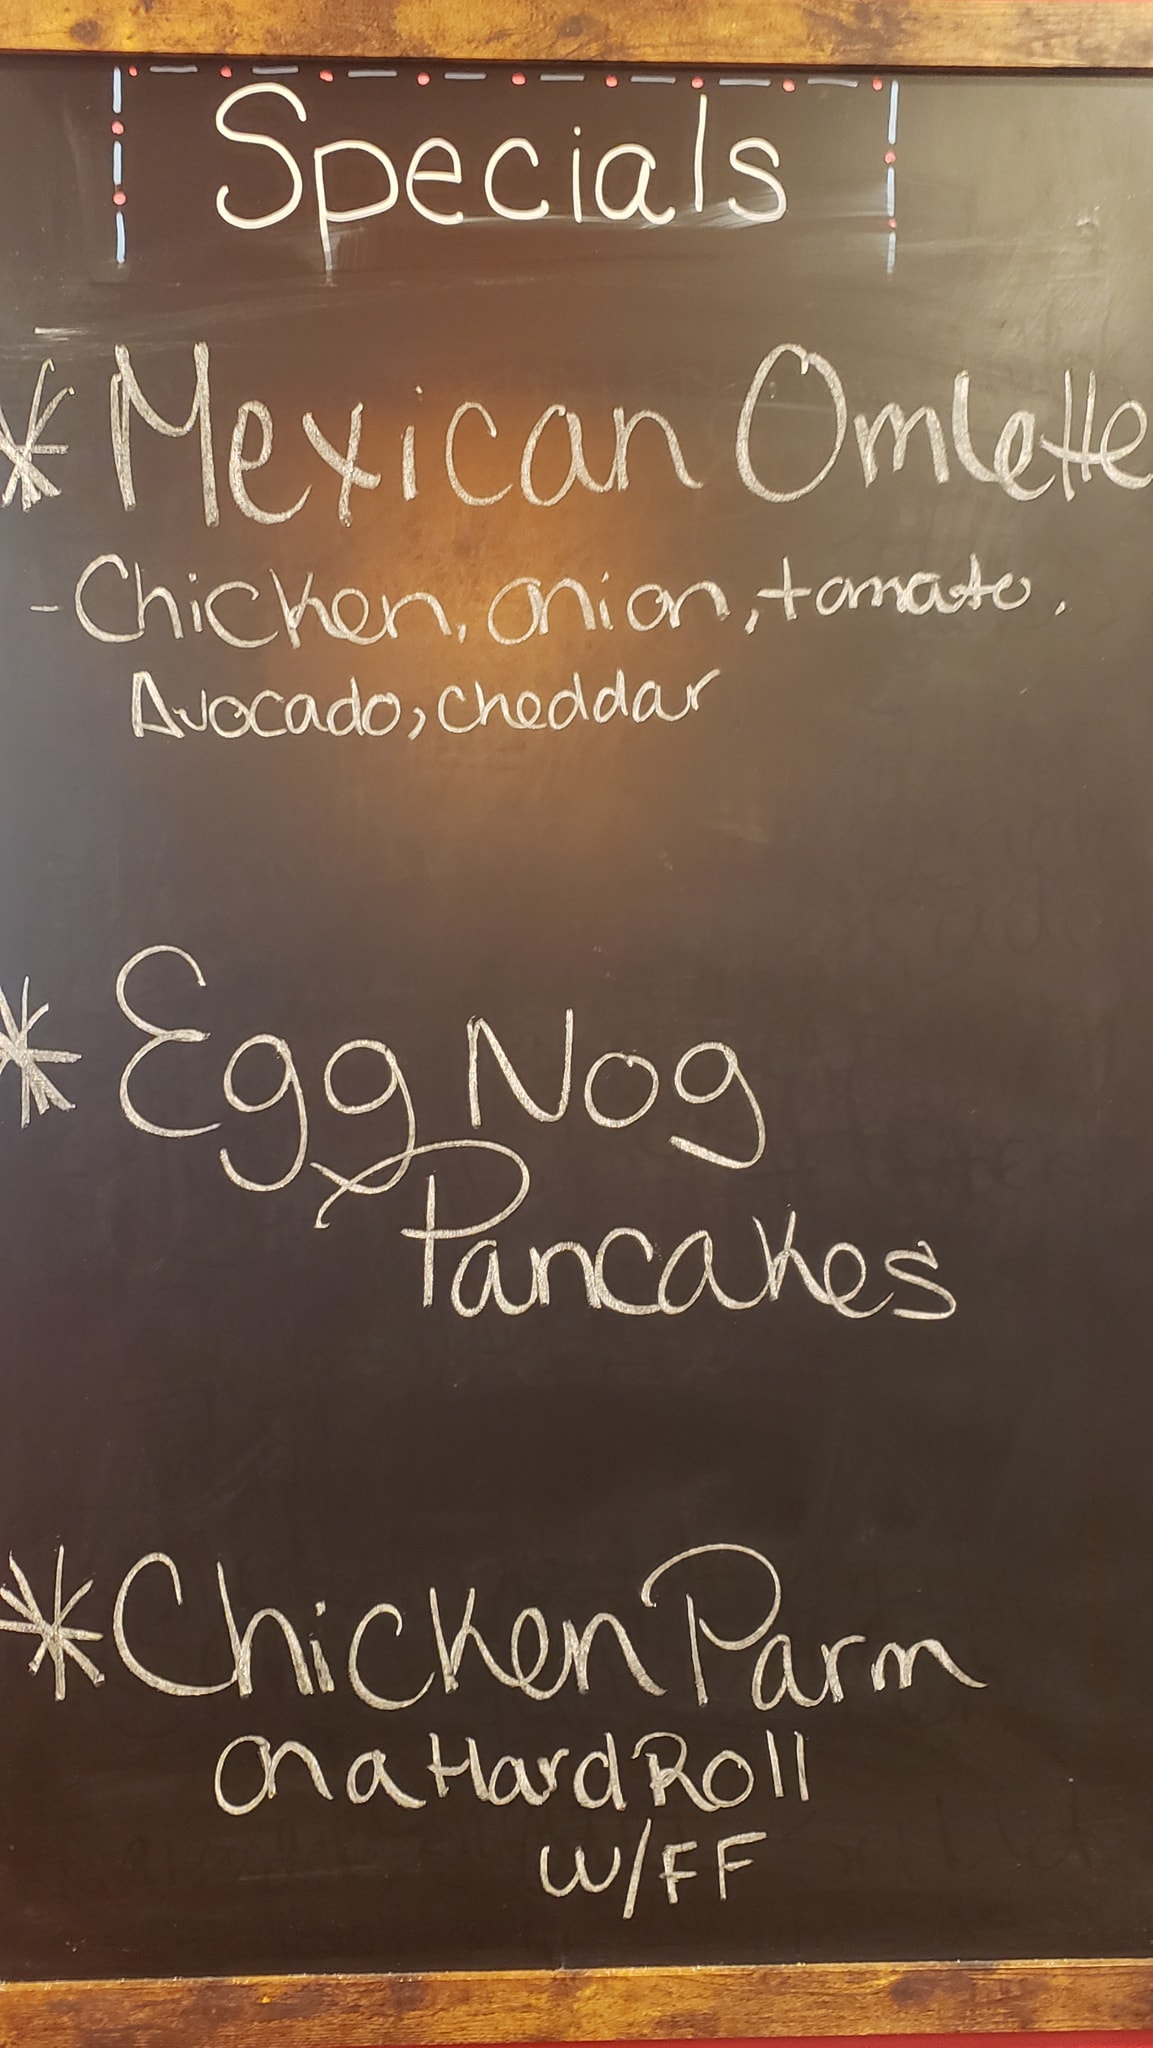 Specials
* Mexican Omlette
- Chicken, onion, tomato,
Avocado, cheddar
* Egg Nog
Pancakes
* Chicken Parm
on a Hard Roll
w/FF